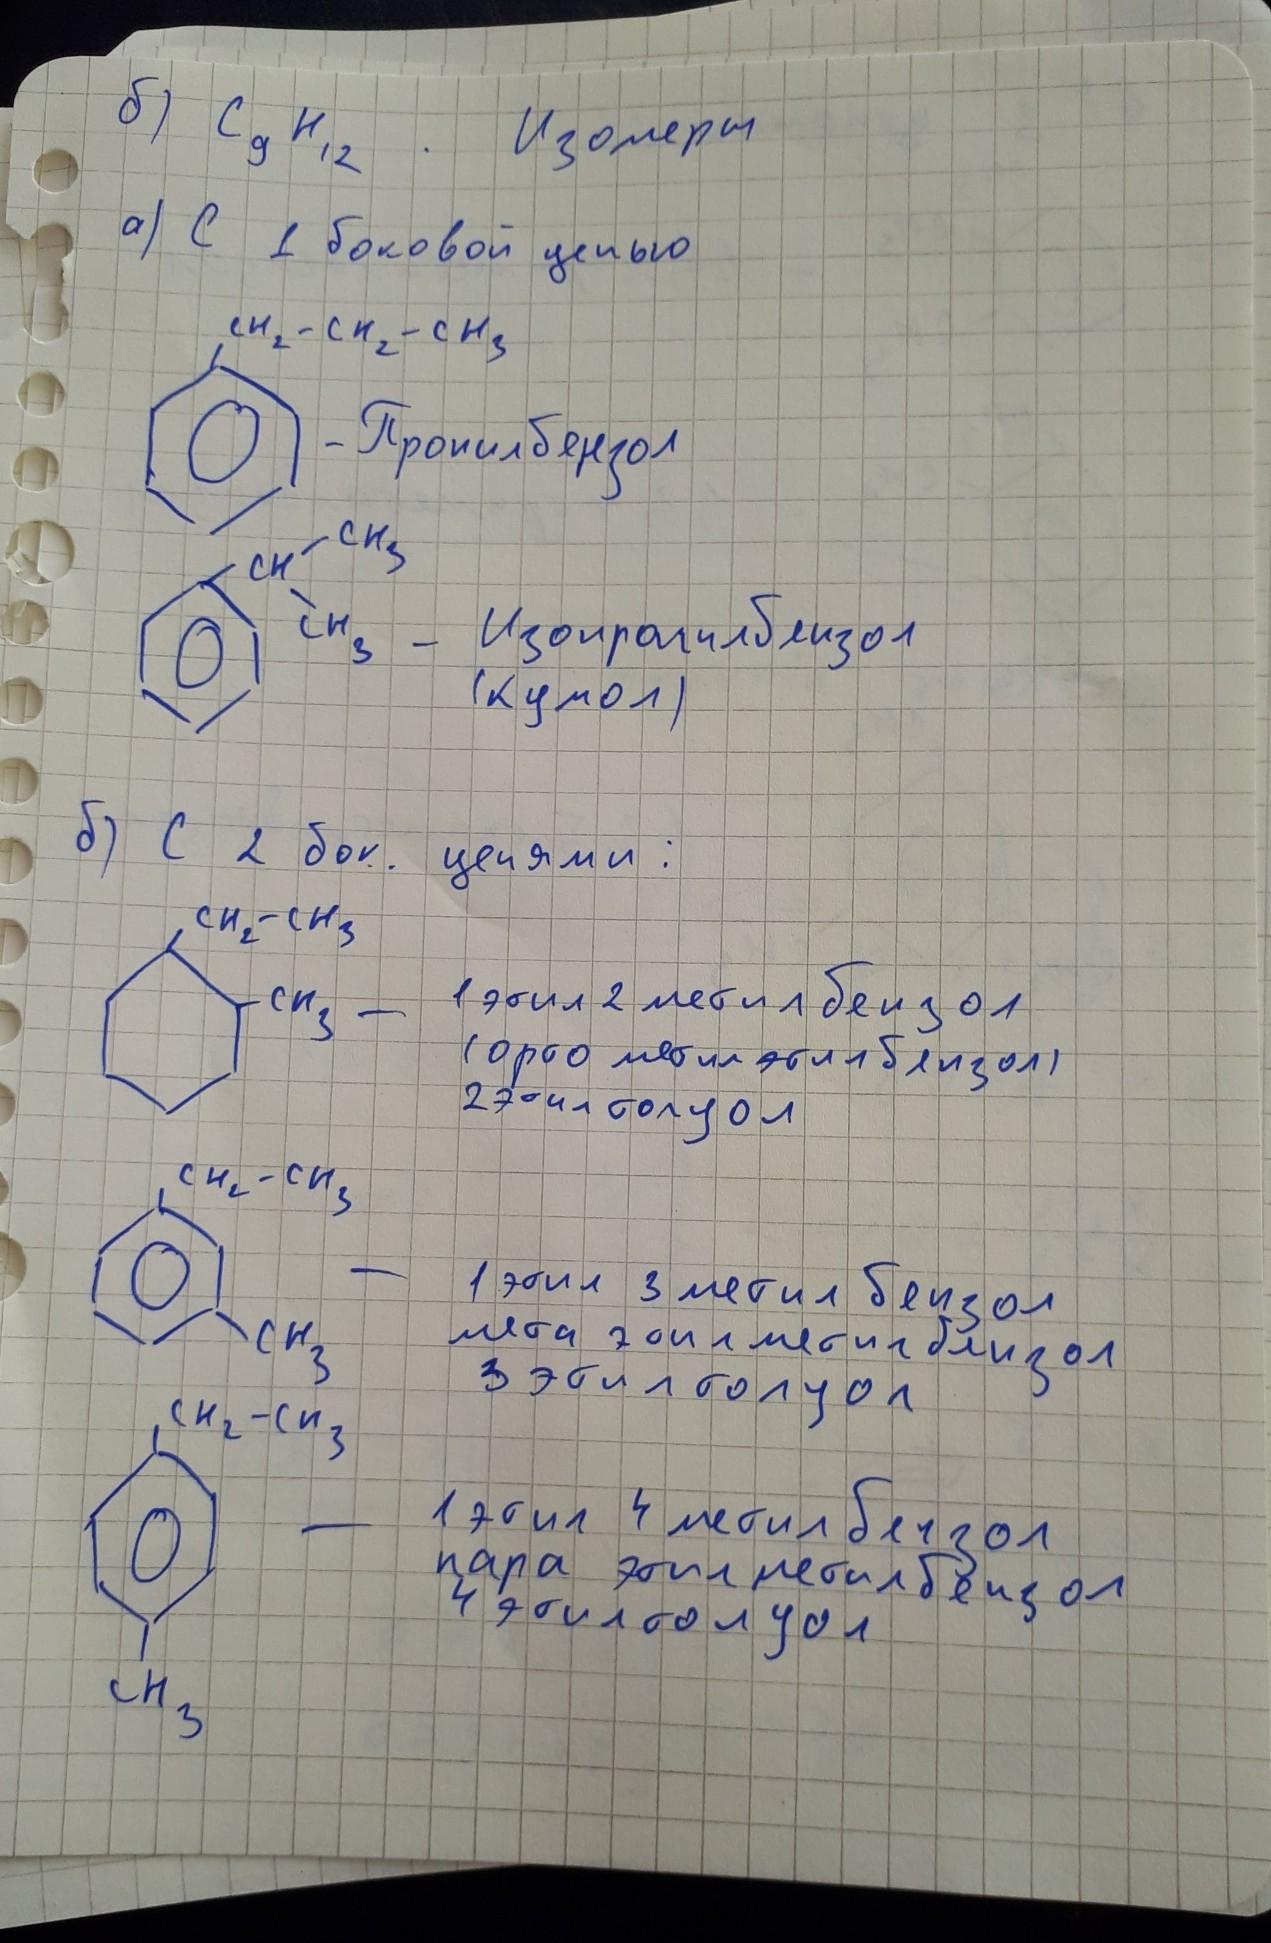 б) C9H12 . Изомеры
а) С 1 боковой цепью
CH2-CH2-CH3
- Пропилбензол
CH-CH3
CH3 - Изопропилбензол
(кумол)
б) С 2 бок. цепями:
CH2-CH3
CH3 — 1 этил 2 метил бензол
(орто метил этил бензол)
2 этил толуол
CH2-CH3
— 1 этил 3 метил бензол
CH3 мета этил метил бензол
3 этил толуол
CH2-CH3
— 1 этил 4 метил бензол
пара этил метил бензол
4 этил толуол
CH3